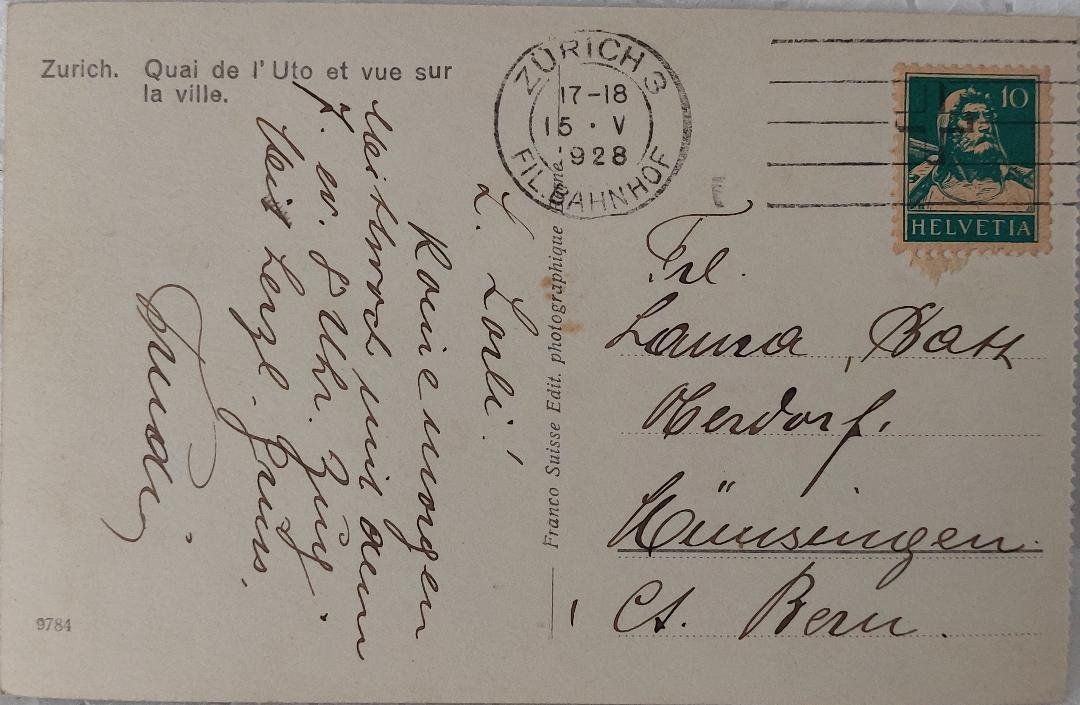 Zurich. Quai de l'Uto et vue sur
la ville.
ZÜRICH 3
17-18
15 · V
1928
FIL. BAHNHOF
10
HELVETIA
L. Lorli!
Komme morgen
Mittwoch mit dem
7. od. 8 Uhr. Zug.
Herzl. Gruss.
Trudi
Franco Suisse Edit. photographique Berne.
Frl.
Laura
Oberdorf.
Münsingen.
Ct. Bern.
9784